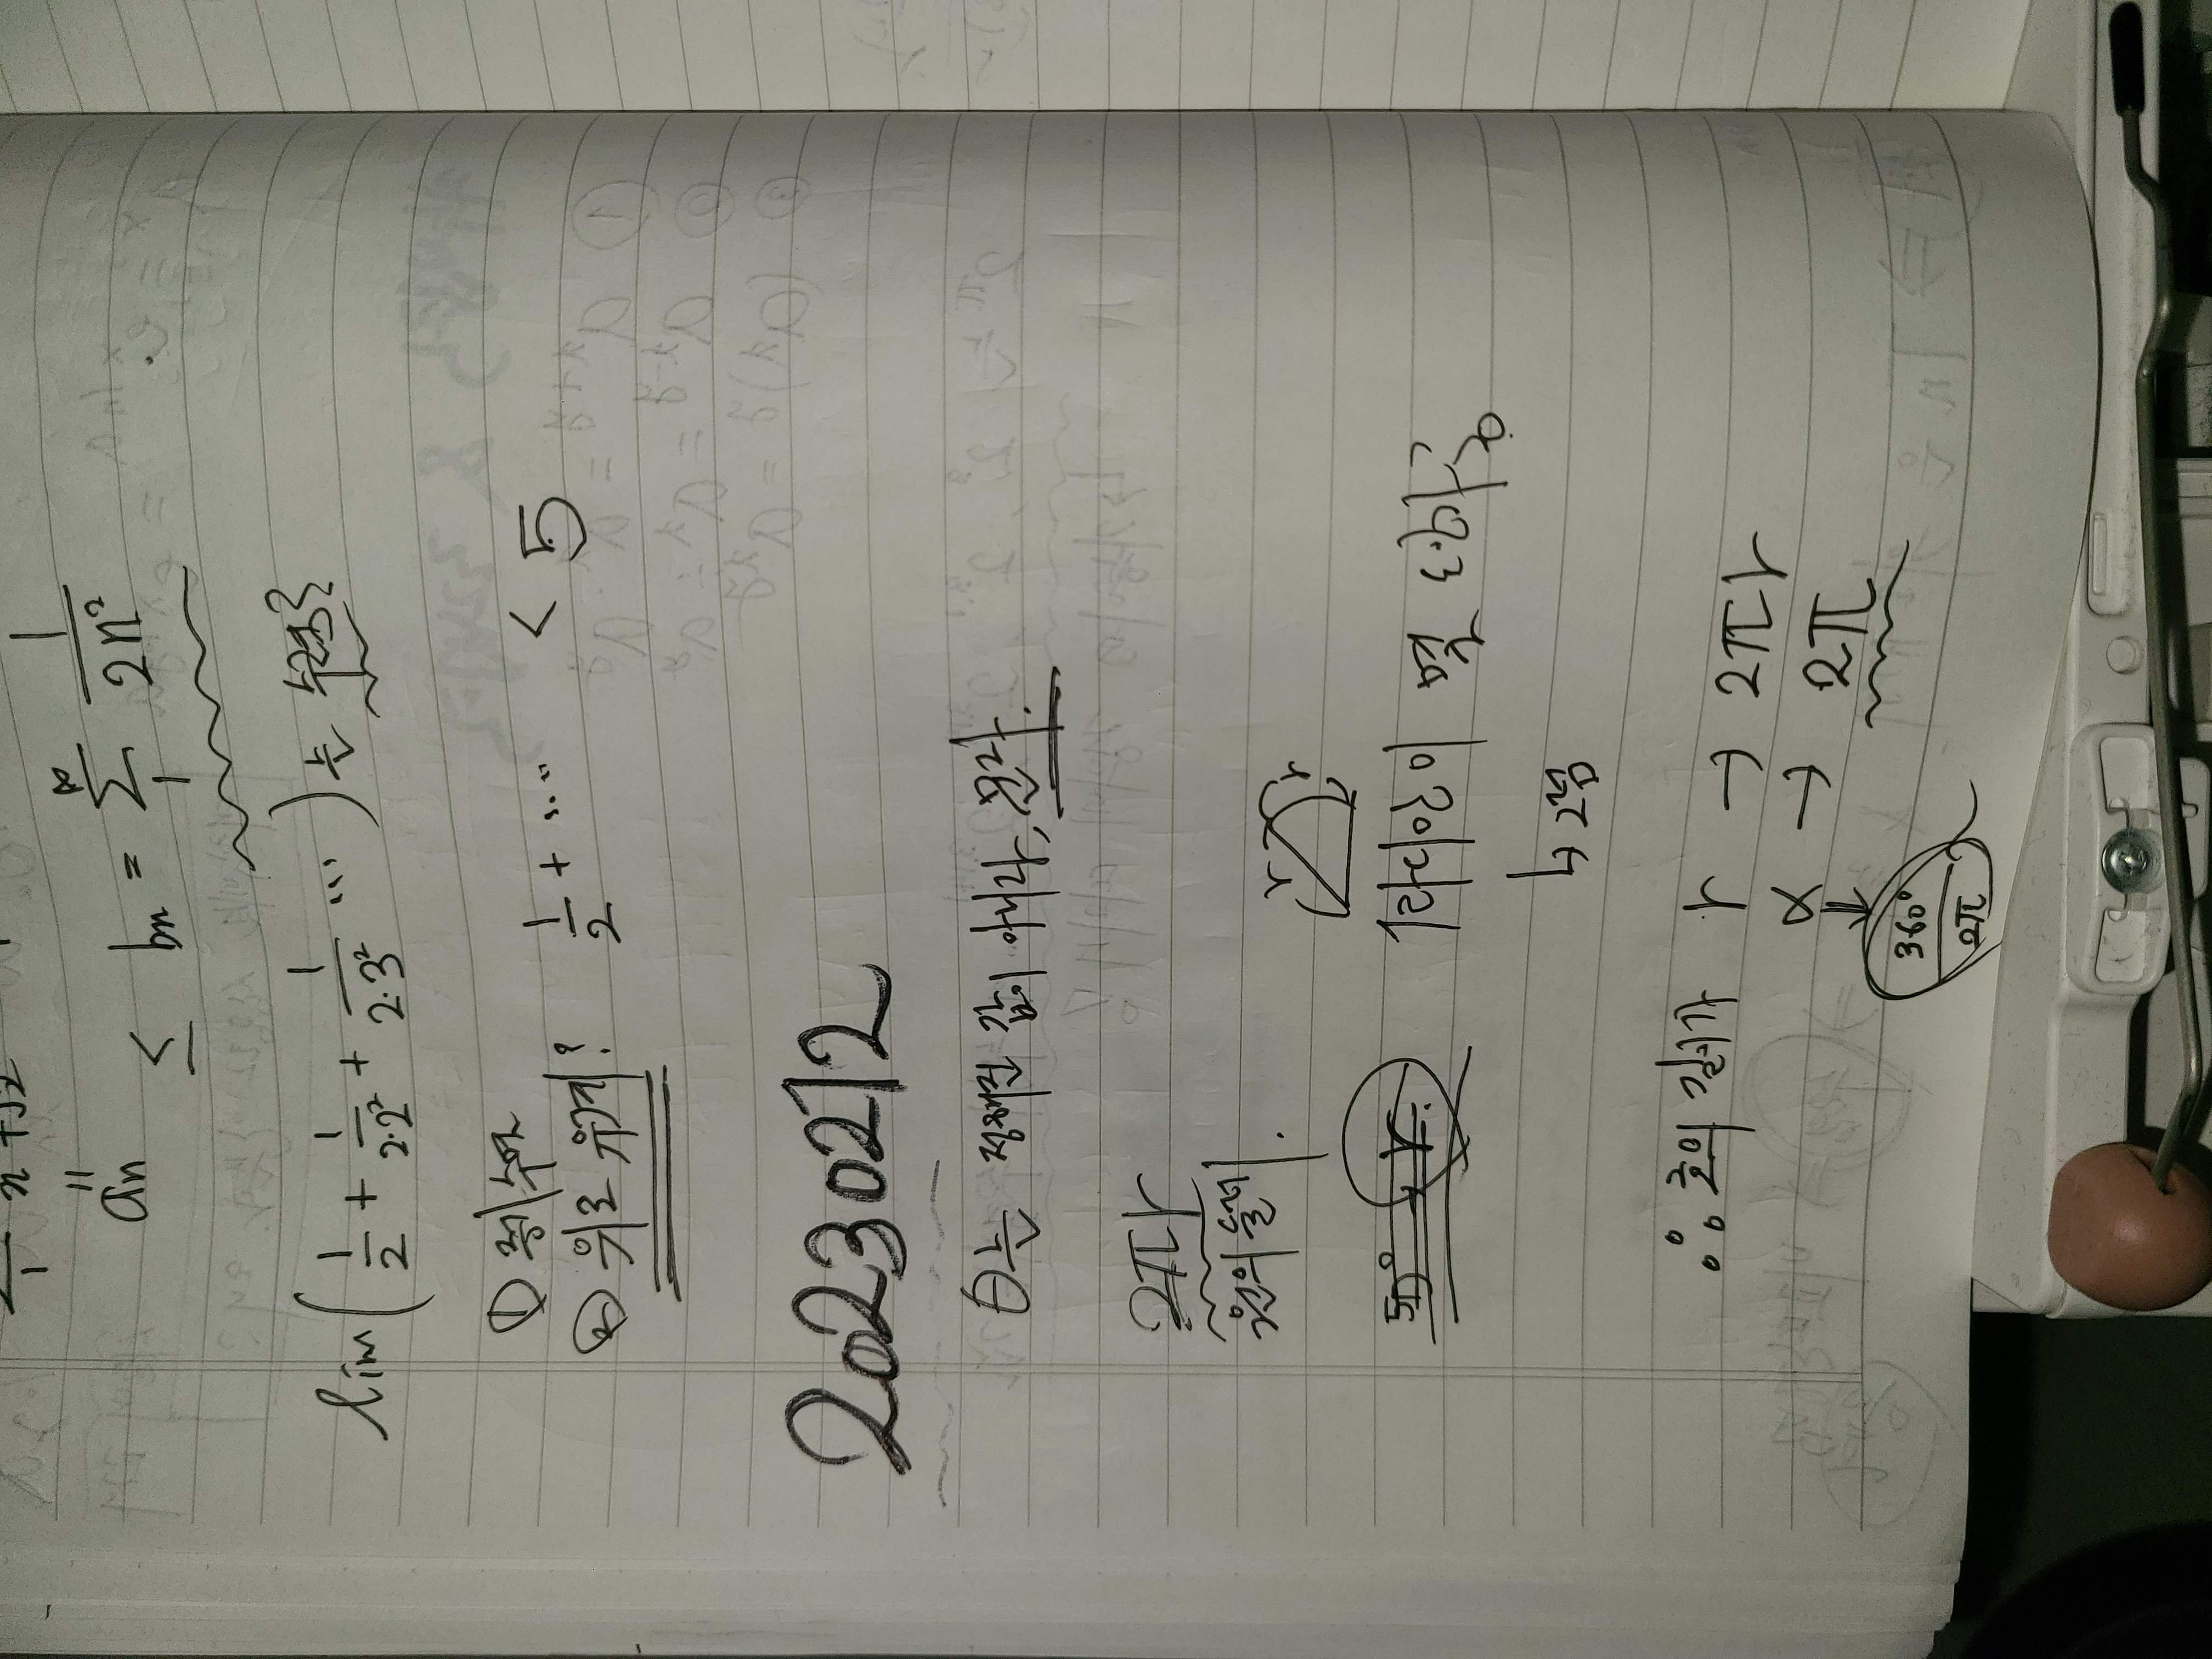 an ≤ bn = ∞ Σ 1 1/2n²
lim( 1/2 + 1/2·2² + 1/2·3² ... )는 수렴?
① 증가수열
② 위로 유계? 1/2 + ..... < 5
20230212
θ는 정해진 값이 아니라, 문자.
2πr
원의 둘레.
r r
r.
1라디안이 몇 도인가?
↳ 2점
∴ 호의 길이가 r → 2πr
α → 2π
⇓
360°/2π